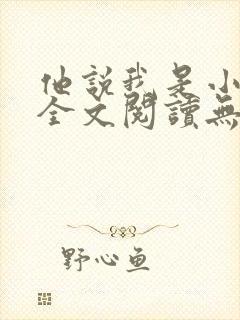 他說我是小
全文閱讀無
野心鱼